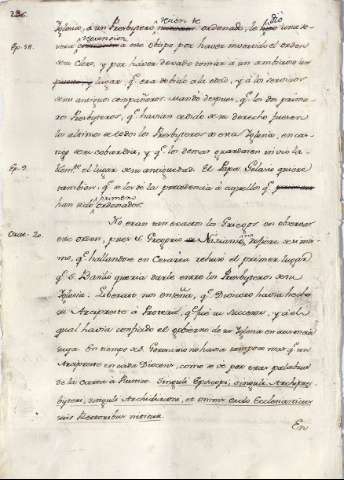 236.
Iglesia, à un Presbytero recien te ordenado, lo hizo una se
Ep. 58. vera reprension à este obispo por haver invertido el orden
su Clero, y por haver dexado tomar à un ambicioso un
puesto y lugar qe. era debido à la edad, y à los servicios
sus antiguos compañeros. Mandò despues, qe. los dos prime
ros Presbyteros, qe. havian cedido de su derecho fuesen
los ultimos de todos los Presbyteros de esta Iglesia, en cas
go su cobardia, y qe. los demas guardasen inviola
Ep. 9. blemte. el lugar su antiguedad. El Papa Gelasio quiere
tambien, qe. se les dè la presidencia à aquellos qe.
han sido primero ordenados.
No eran tan exactos los Griegos en observar
Orat. 20. este orden, pues S. Gregorio Nazianzeno refiere de si mis
mo, qe. hallandose en Cesarea rehusò el primer lugar,
qe. S. Basilio queria darle entre los Presbyteros su
Iglesia. Liberato nos enseña, qe. Dioscoro havia hecho
su Arcipreste à Proterio, qe. fuè su succesor, y à el
qual havia confiado el gobierno de su Iglesia en ausencia
suya. En tiempo S. Geronimo no havia tampoco mas qe. un
Arcipreste en cada Diocesis, como se vè por estas palabras
de la carta à Rustico Singuli Episcopi, singuli Archipres
byteri, singuli Archidiaconi, et omnis ordo Ecclesiasticus
suis Rectoribus nititur.
En